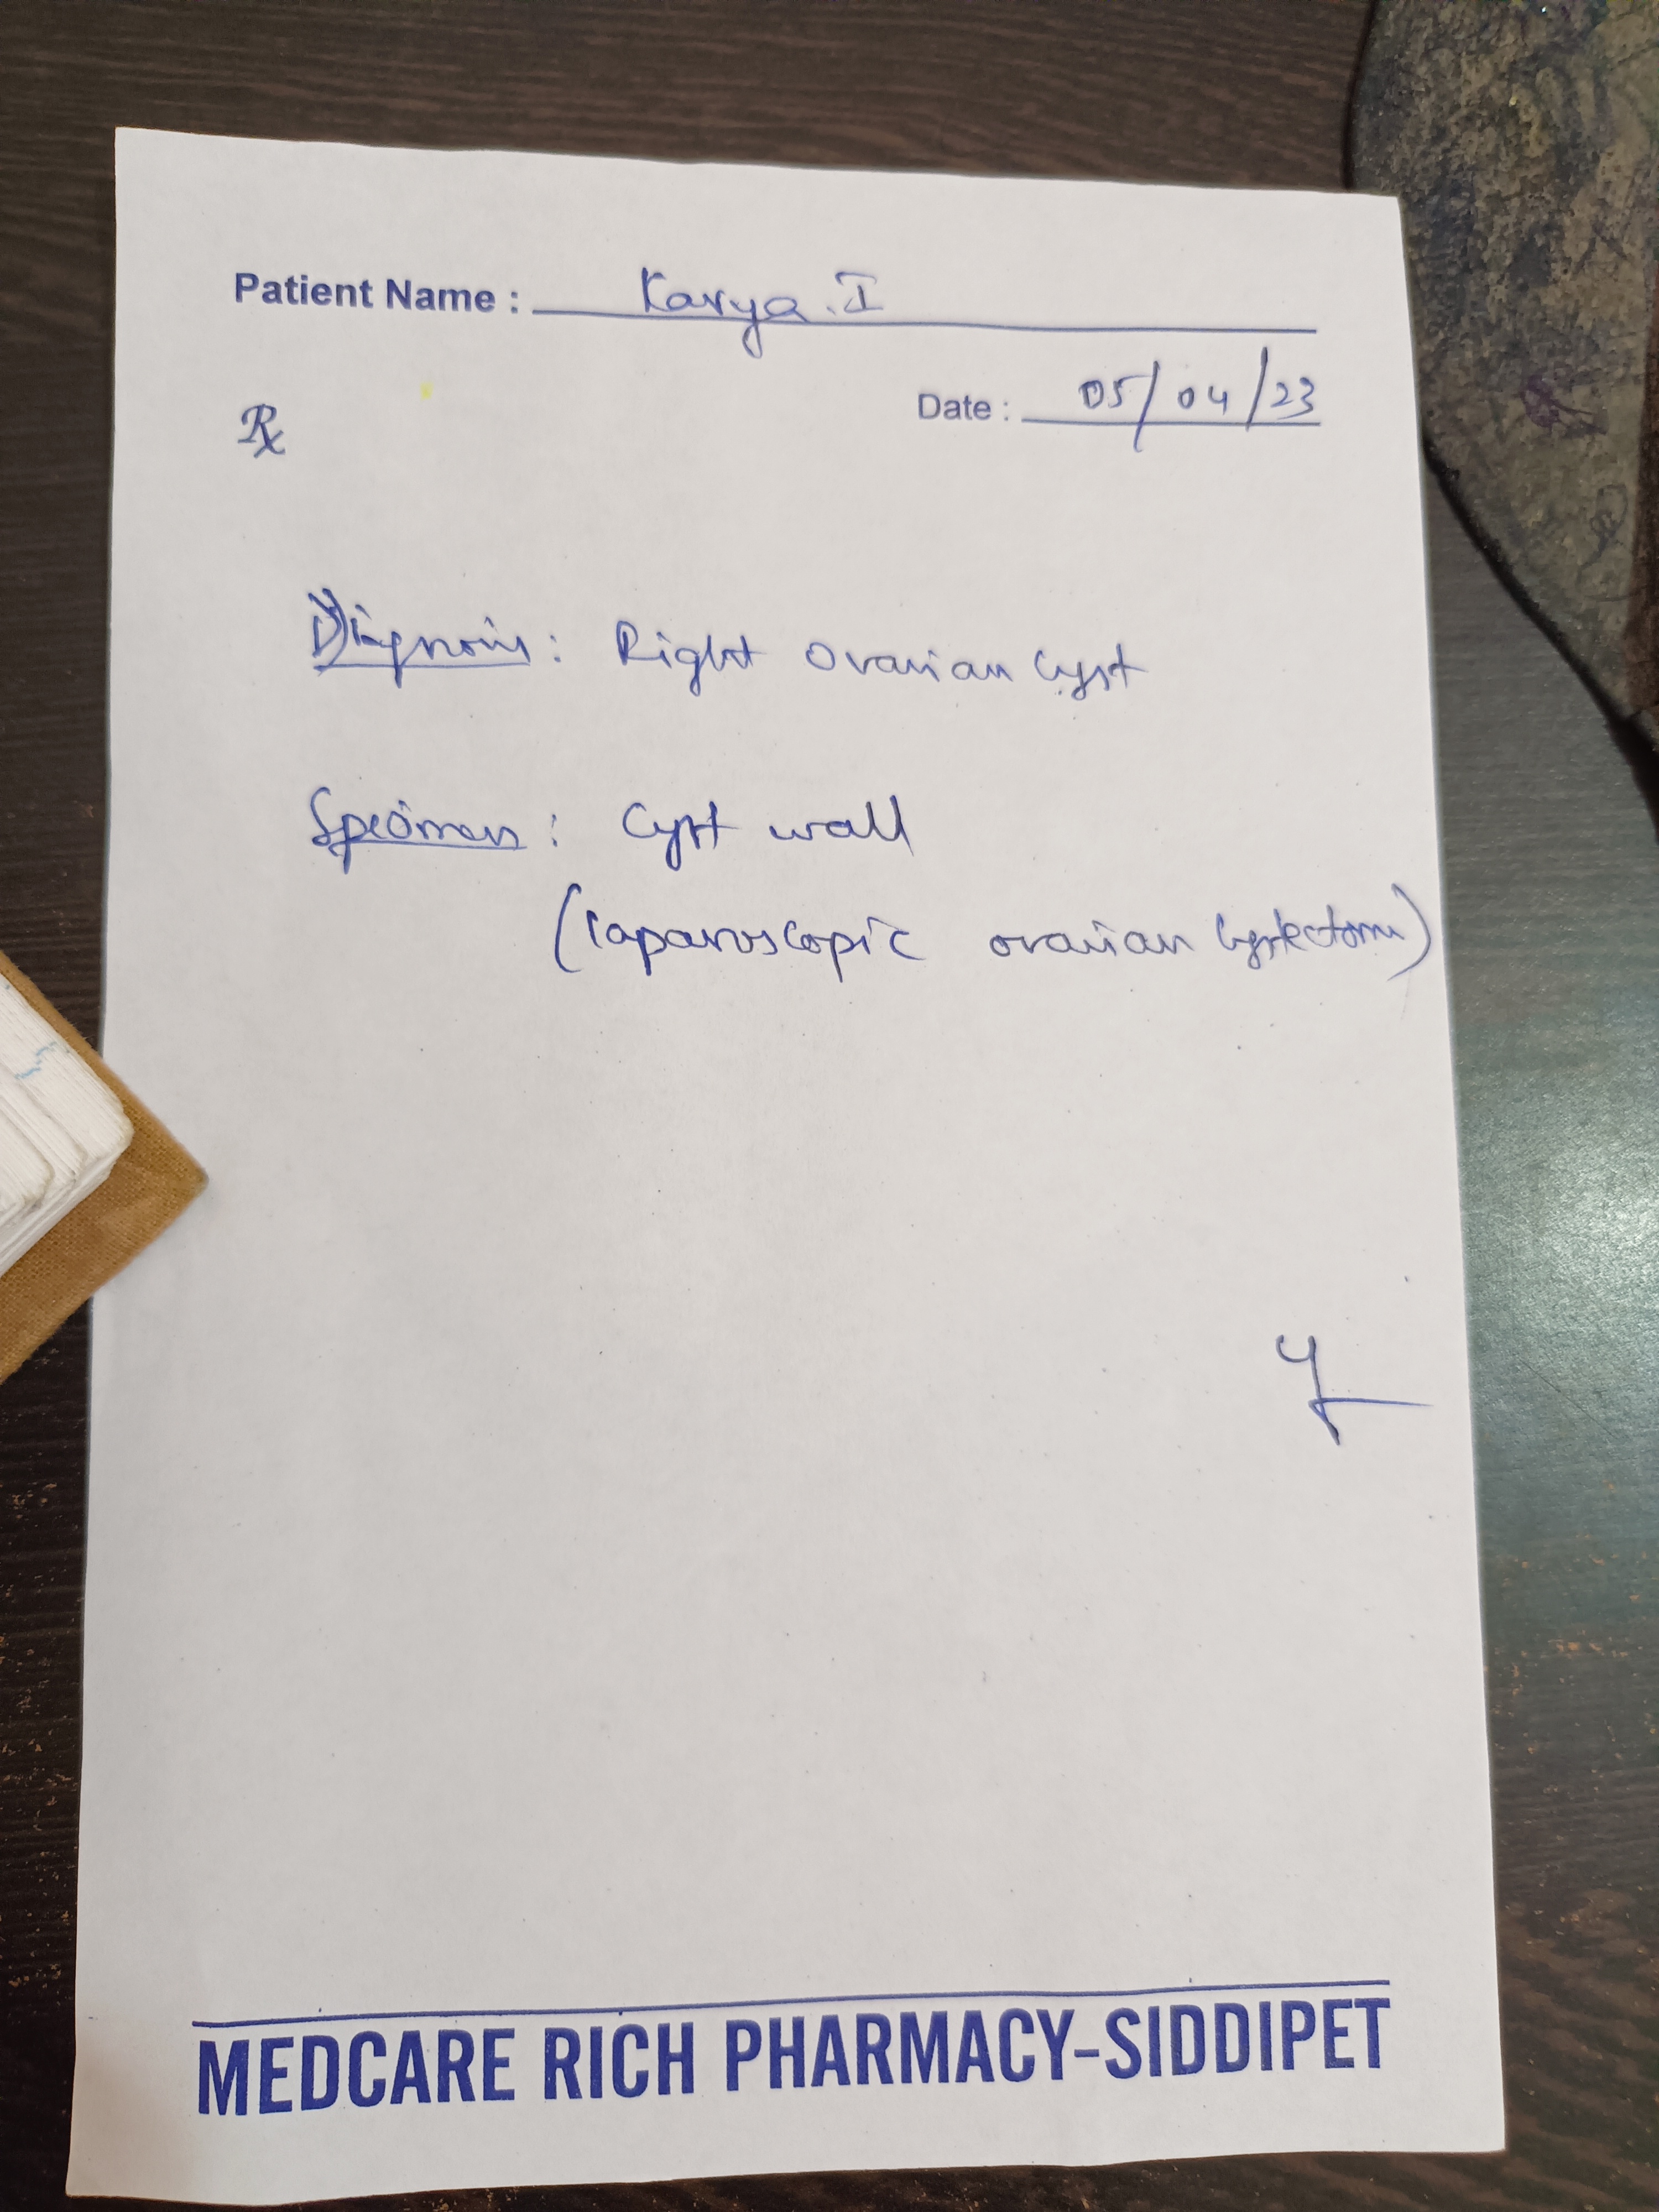 Patient Name : Kavya. I
Date : 05/04/23
Rx
Diagnosis : Right Ovarian Cyst
Specimen : Cyst wall
(laparoscopic ovarian cystectomy)
MEDCARE RICH PHARMACY-SIDDIPET